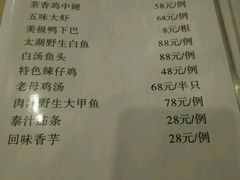 茶香鸡中翅 58元/例
五味大虾 68元/例
美极鸭下巴 8元/根
太湖野生白鱼 88元/例
白汤鱼头 88元/例
特色辣仔鸡 48元/例
老母鸡汤 68元/半只
肉汁野生大甲鱼 78元/例
泰汁茄条 28元/例
回味香芋 28元/例